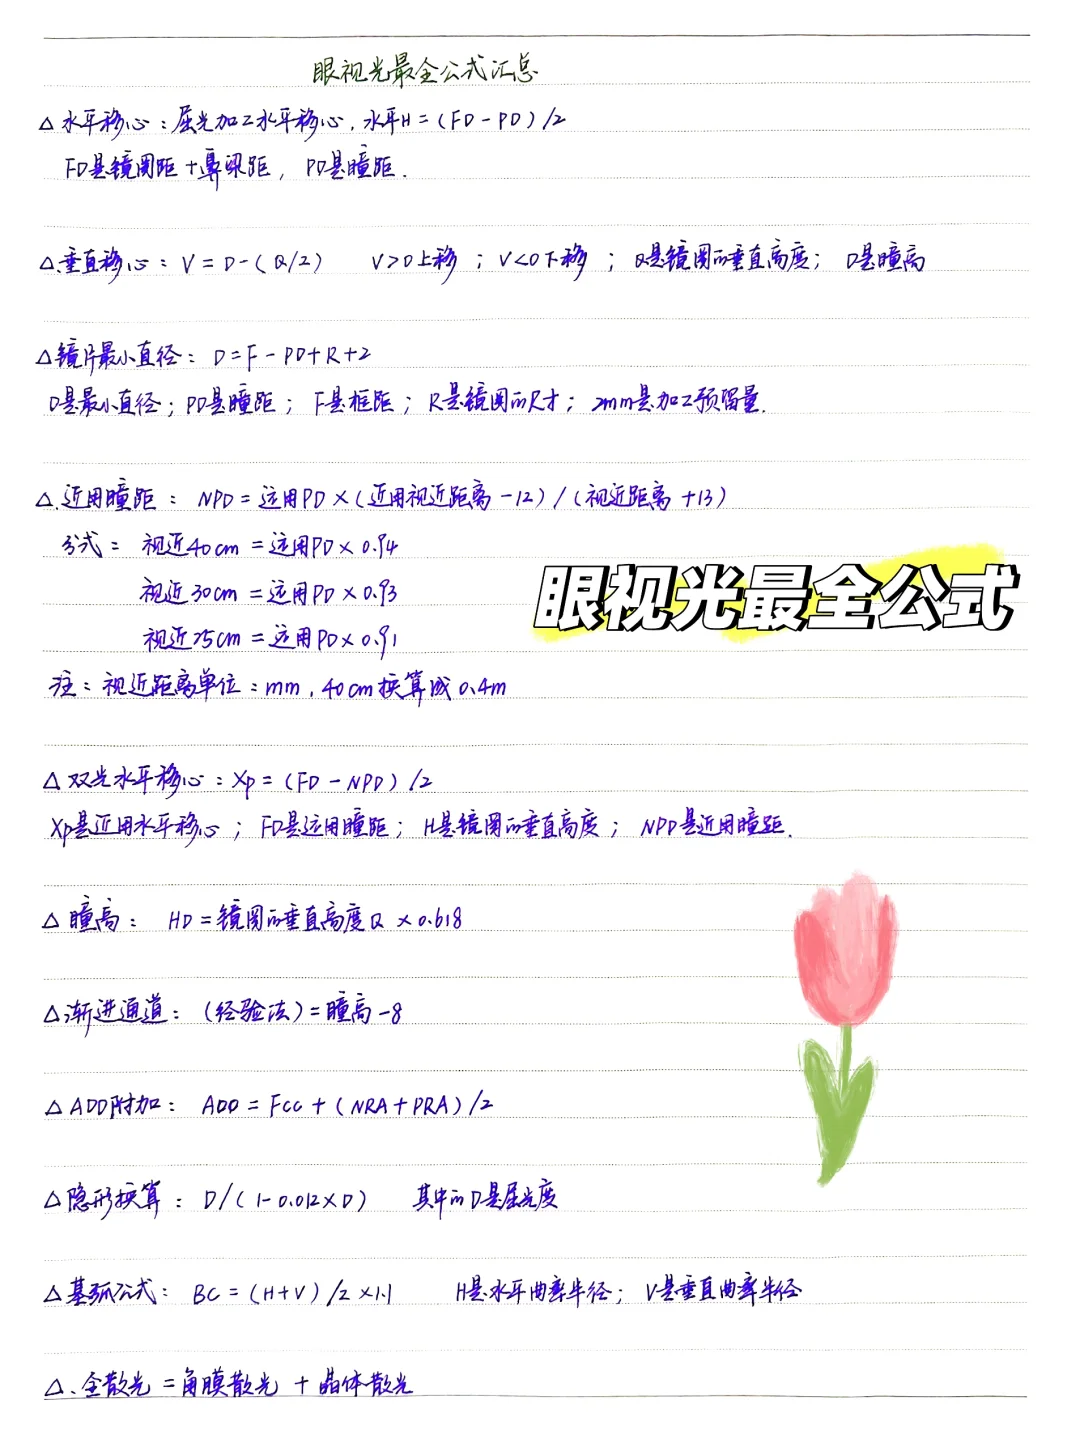 眼视光最全公式汇总
△水平移心：屈光加工水平移心，水平H=(FD-PD)/2
FD是镜圈距+鼻梁距，PD是瞳距.
△.垂直移心：V=D-(Q/2) V>0上移；V<0下移；Q是镜圈的垂直高度；D是瞳高
△镜片最小直径：D=F-PD+R+2
D是最小直径；PD是瞳距；F是框距；R是镜圈的尺寸；2mm是加工预留量.
△.近用瞳距：NPD=远用PD×(近用视近距离-12)/(视近距离+13)
公式=视近40cm=远用PD×0.94
视近30cm=远用PD×0.93
视近25cm=远用PD×0.91
眼视光最全公式
注：视近距离单位：mm，40cm换算成0.4m
△双光水平移心：Xp=(FD-NPD)/2
Xp是近用水平移心；FD是远用瞳距；H是镜圈的垂直高度；NPD是近用瞳距.
△瞳高：HD=镜圈的垂直高度Q×0.618
△渐进通道：(经验法)=瞳高-8
△ADD附加：ADD=FCC+(NRA+PRA)/2
△隐形换算：D/(1-0.012×D) 其中的D是屈光度
△基弧公式：BC=(H+V)/2×1.1 H是水平曲率半径；V是垂直曲率半径
△、全散光=角膜散光+晶体散光